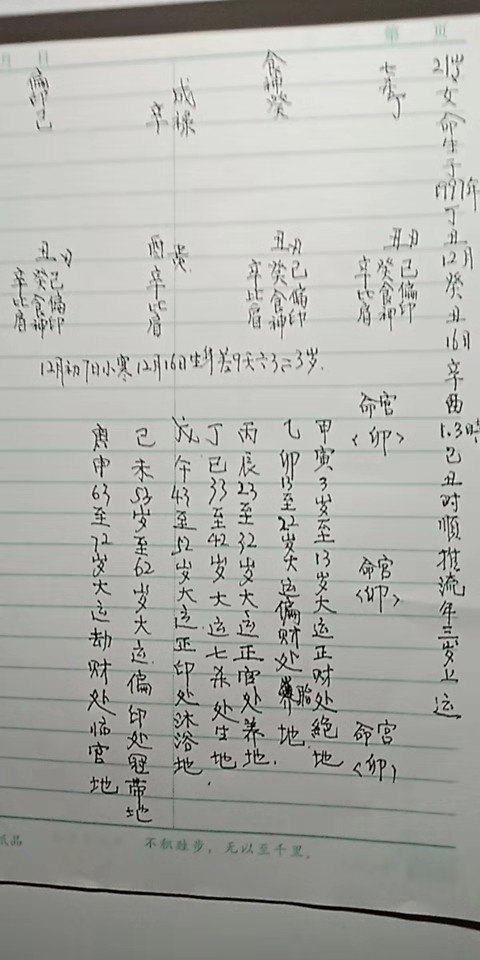 第 页
月 日
21岁女命生于1997年丁丑12月癸丑16日辛酉1.3時己丑时順推流年三岁上运
七杀丁
食神癸
戌禄
辛
偏印己
丑月
己偏印
癸食神
辛比肩
丑月
己偏印
癸食神
辛比肩
酉
辛比肩
丑月
己偏印
癸食神
辛比肩
12月初7日小寒12月16日生年差9天六3=3岁.
命宫<卯>
命宫<卯>
命宫<卯>
甲寅3岁至13岁大运正财处絕地
乙卯13至22岁大运偏财处胎地.
丙辰23至32岁大运正官处养地.
丁巳33至42岁大运七杀处生地.
戊午43至52岁大运正印处沐浴地.
己未53岁至62岁大运偏印处冠带地
庚申63至72岁大运劫财处临官地
纸品
不积跬步,无以至千里.